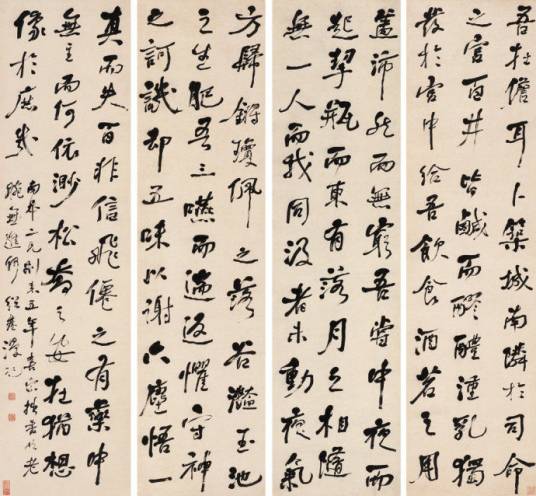 吾在儋耳卜築城南隣於司命
之宮百井皆鹹而醪醴湩乳獨
發於宮中給吾飲食酒茗之用
蓋沛然而無窮吾嘗中夜而
起挈瓶而東有落月之相隨
無一人而我同汲者未動夜氣
方歸鏘瓊佩之落谷灩玉池
之生肥吾三嚥而遄返懼守神
之訶譏却五味以謝六塵悟一
真而失百非信飛僊之有藥中
無主而何依渺松喬之安在猶想
像於庶幾
二兄別 五年